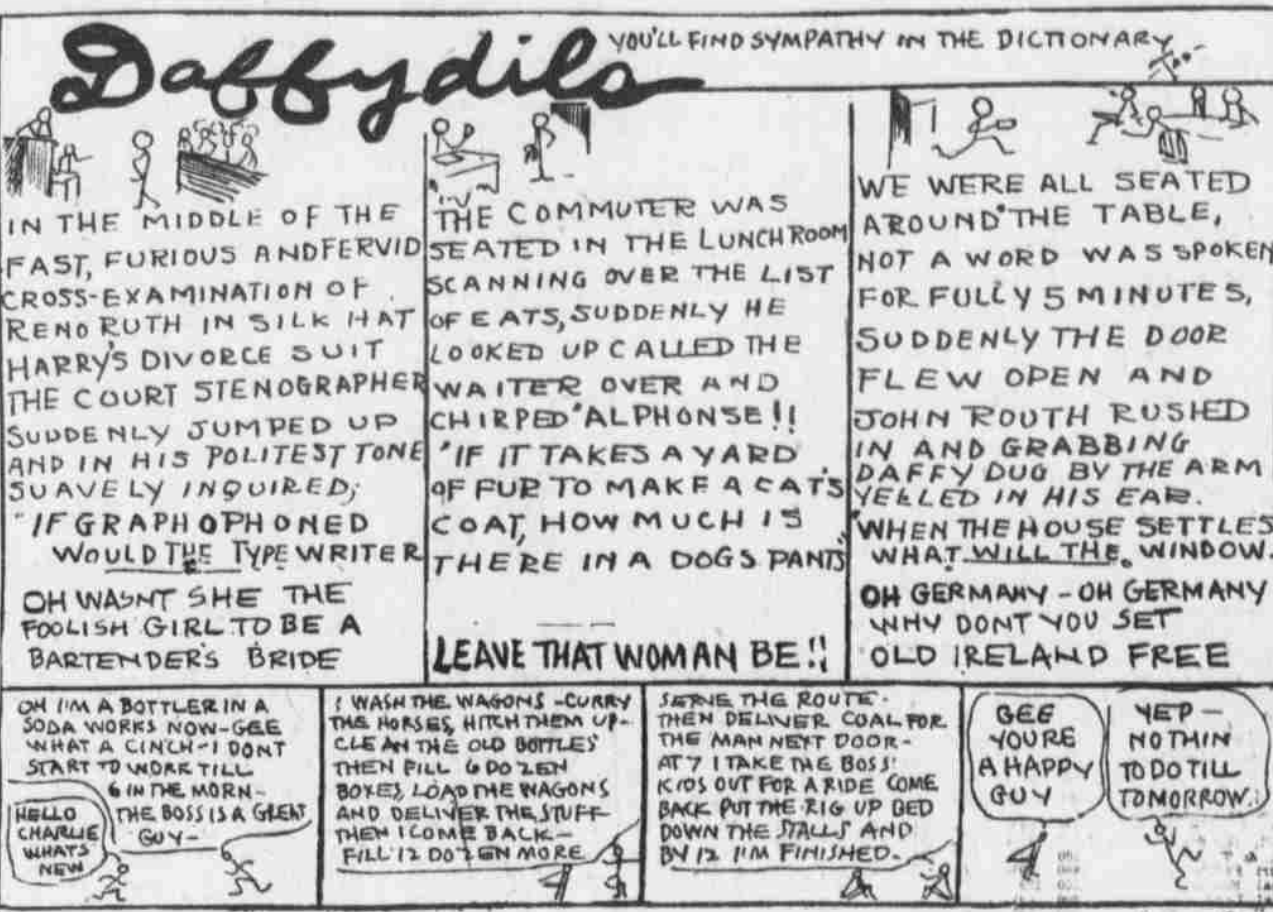 Daffydils
YOU'LL FIND SYMPATHY IN THE DICTIONARY
IN THE MIDDLE OF THE
FAST, FURIOUS AND FERVID
CROSS-EXAMINATION OF
RENO RUTH IN SILK HAT
HARRY'S DIVORCE SUIT
THE COURT STENOGRAPHER
SUDDENLY JUMPED UP
AND IN HIS POLITEST TONE
SUAVELY INQUIRED;
"IF GRAPHOPHONED
WOULD THE TYPEWRITER
OH WASNT SHE THE
FOOLISH GIRL TO BE A
BARTENDER'S BRIDE
THE COMMUTER WAS
SEATED IN THE LUNCHROOM
SCANNING OVER THE LIST
OF EATS, SUDDENLY HE
LOOKED UP CALLED THE
WAITER OVER AND
CHIRPED "ALPHONSE!!
"IF IT TAKES A YARD
OF FUR TO MAKE A CAT'S
COAT, HOW MUCH IS
THERE IN A DOGS PANTS"
LEAVE THAT WOMAN BE!!
WE WERE ALL SEATED
AROUND THE TABLE,
NOT A WORD WAS SPOKEN
FOR FULLY 5 MINUTES,
SUDDENLY THE DOOR
FLEW OPEN AND
JOHN ROUTH RUSHED
IN AND GRABBING
DAFFY DUG BY THE ARM
YELLED IN HIS EAR.
"WHEN THE HOUSE SETTLES
WHAT WILL THE WINDOW.
OH GERMANY - OH GERMANY
WHY DONT YOU SET
OLD IRELAND FREE
HELLO
CHARLIE
WHATS
NEW
OH I'M A BOTTLER IN A
SODA WORKS NOW-GEE
WHAT A CINCH-I DONT
START TO WORK TILL
6 IN THE MORN-
THE BOSS IS A GREAT
GUY-
I WASH THE WAGONS -CURRY
THE HORSES, HITCH THEM UP-
CLEAN THE OLD BOTTLES
THEN FILL 6 DOZEN
BOXES, LOAD THE WAGONS
AND DELIVER THE STUFF
THEN I COME BACK-
FILL 12 DOZEN MORE
SERVE THE ROUTE-
THEN DELIVER COAL FOR
THE MAN NEXT DOOR-
AT 7 I TAKE THE BOSS'
KIDS OUT FOR A RIDE COME
BACK PUT THE RIG UP BED
DOWN THE STALLS AND
BY 12 I'M FINISHED-
GEE
YOURE
A HAPPY
GUY
YEP-
NOTHIN
TO DO TILL
TOMORROW.